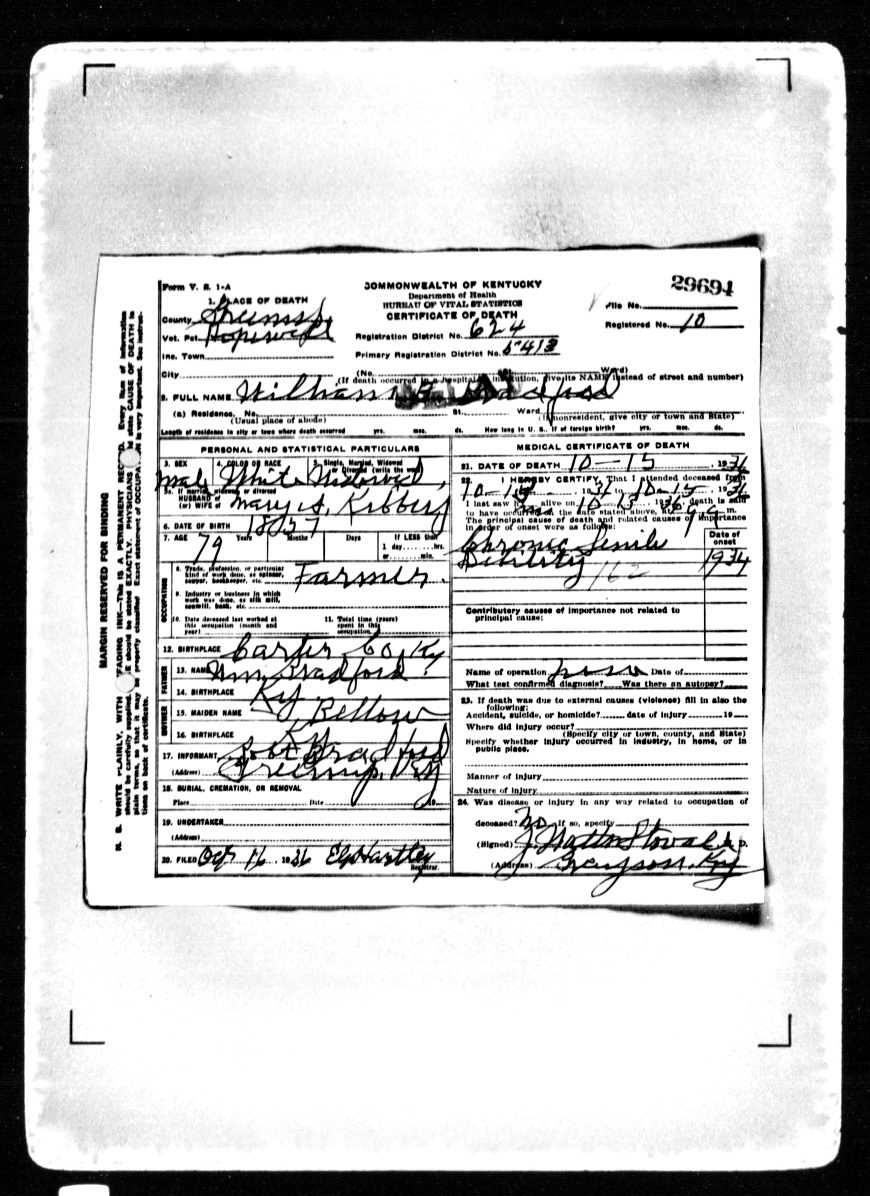 Form V. S. 1-A
COMMONWEALTH OF KENTUCKY
29694
Department of Health
BUREAU OF VITAL STATISTICS
CERTIFICATE OF DEATH
1. PLACE OF DEATH
County Greenup
Vot. Pct. Hopewell
Inc. Town
City
File No.
Registered No. 10
Registration District No. 624
Primary Registration District No.
(No. Ward)
(If death occurred in a hospital or institution, give its NAME instead of street and number)
2. FULL NAME William Bradford
(a) Residence, No. St. Ward
(Usual place of abode) (If nonresident, give city or town and State)
Length of residence in city or town where death occurred yrs. mos. ds. How long in U. S., if of foreign birth? yrs. mos. ds.
PERSONAL AND STATISTICAL PARTICULARS
3. SEX Male
4. COLOR OR RACE White
5. Single, Married, Widowed or Divorced (write the word) Widowed
5a. If married, widowed or divorced
HUSBAND of
(or) WIFE of Mary A. Kibbey
6. DATE OF BIRTH 1857
7. AGE 79 Years Months Days If LESS than 1 day hrs. or min.
OCCUPATION
8. Trade, profession, or particular kind of work done, as spinner, sawyer, bookkeeper, etc. Farmer.
9. Industry or business in which work was done, as silk mill, sawmill, bank, etc.
10. Date deceased last worked at this occupation (month and year)
11. Total time (years) spent in this occupation
12. BIRTHPLACE Carter Co. Ky
FATHER
13. NAME Wm. Bradford
14. BIRTHPLACE Ky
MOTHER
15. MAIDEN NAME Bellow
16. BIRTHPLACE Ky
17. INFORMANT Bradford
(Address) Greenup, Ky
18. BURIAL, CREMATION, OR REMOVAL
Place Date 19
19. UNDERTAKER
(Address)
20. FILED Oct 16 1936 Hartley
Registrar.
MEDICAL CERTIFICATE OF DEATH
21. DATE OF DEATH 10-15, 1936
22. I HEREBY CERTIFY, That I attended deceased from
10-15 1936 to 10-15 1936
I last saw him alive on 10-15 1936 death is said
to have occurred on the date stated above, at m.
The principal cause of death and related causes of importance
in order of onset were as follows:
Date of onset
Chronic Senile
Debility 162 1934
Contributory causes of importance not related to
principal cause:
Name of operation none Date of
What test confirmed diagnosis? Was there an autopsy?
23. If death was due to external causes (violence) fill in also the
following:
Accident, suicide, or homicide? date of injury 19
Where did injury occur?
(Specify city or town, county, and State)
Specify whether injury occurred in industry, in home, or in
public place.
Manner of injury
Nature of injury
24. Was disease or injury in any way related to occupation of
deceased? No If so, specify
(Signed) J. Watts Stovall M. D.
(Address) Grayson, Ky
MARGIN RESERVED FOR BINDING
N. B. WRITE PLAINLY, WITH FADING INK—THIS IS A PERMANENT RECORD. Every item of information
should be carefully supplied. AGE should be stated EXACTLY. PHYSICIANS should state CAUSE OF DEATH in
plain terms, so that it may be properly classified. Exact statement of OCCUPATION is very important. See instruc-
tions on back of certificate.